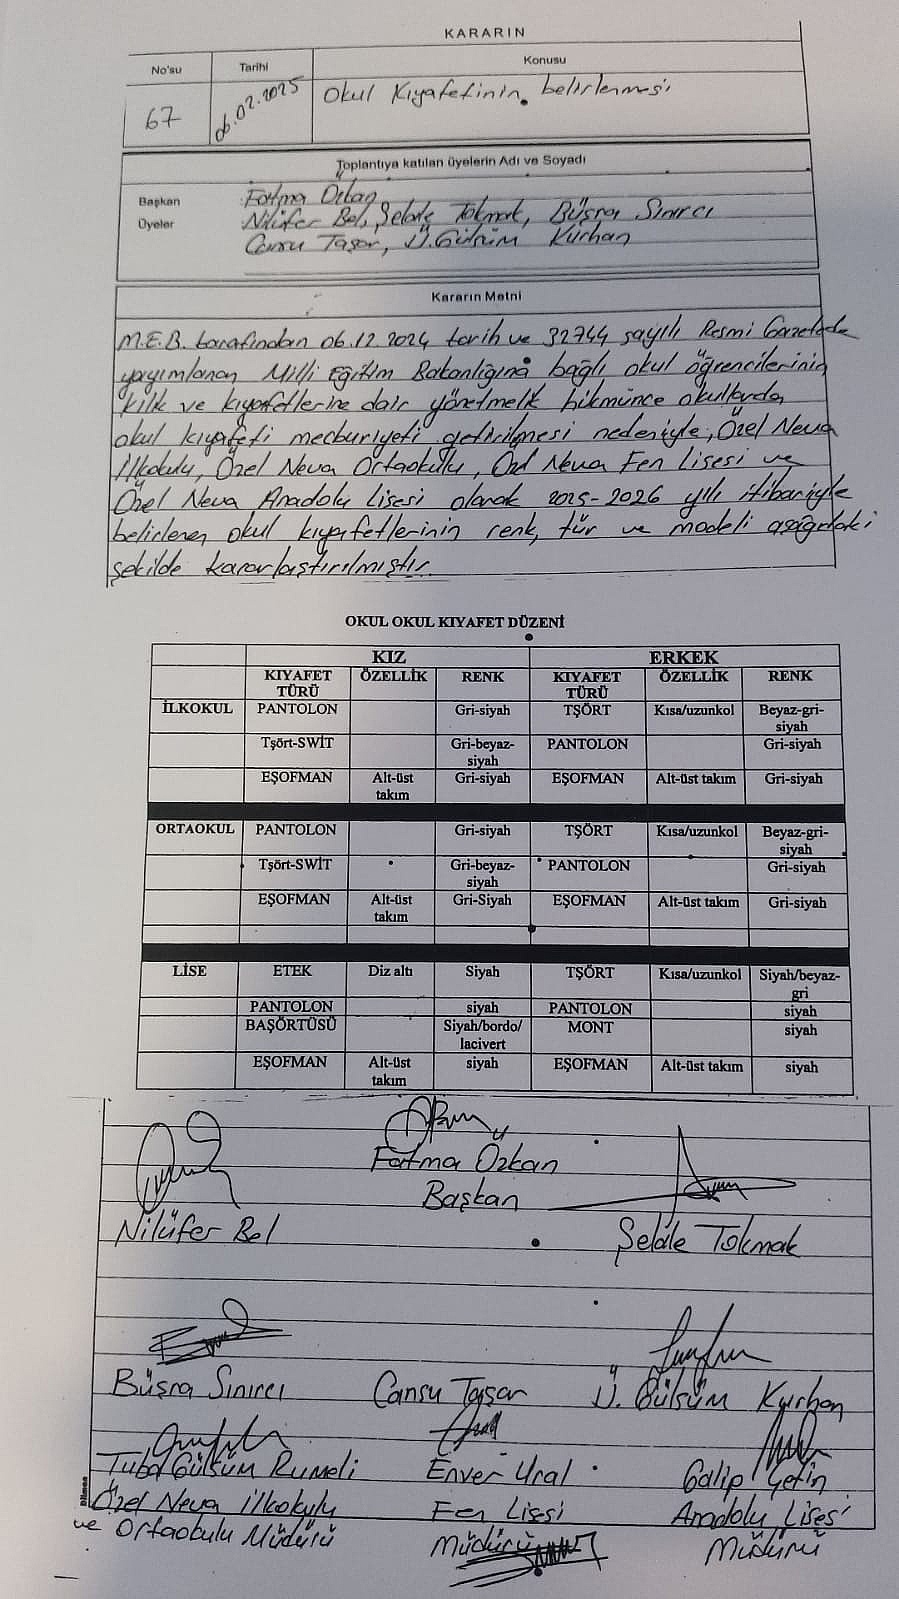 KARARIN
No'su Tarihi Konusu
67 06.02.2025 Okul Kıyafetinin belirlenmesi
Toplantıya katılan üyelerin Adı ve Soyadı
Başkan Fatma Özkan
Üyeler Nilüfer Bel, Şelale Tokmak, Büşra Sınırcı
Cansu Taşar, Ü. Gülsüm Kurhan
Kararın Metni
M.E.B. tarafından 06.12.2024 tarih ve 32744 sayılı Resmi Gazetede
yayımlanan Milli Eğitim Bakanlığına bağlı okul öğrencilerinin
kılık ve kıyafetlerine dair yönetmelik hükmünce okullarda
okul kıyafeti mecburiyeti getirilmesi nedeniyle, Özel Neva
İlkokulu, Özel Neva Ortaokulu, Özel Neva Fen Lisesi ve
Özel Neva Anadolu Lisesi olarak 2025-2026 yılı itibariyle
belirlenen okul kıyafetlerinin renk, tür ve modeli aşağıdaki
şekilde kararlaştırılmıştır.
OKUL OKUL KIYAFET DÜZENİ
KIZ ERKEK
KIYAFET TÜRÜ ÖZELLİK RENK KIYAFET TÜRÜ ÖZELLİK RENK
İLKOKUL PANTOLON Gri-siyah TŞÖRT Kısa/uzunkol Beyaz-gri-siyah
Tşört-SWİT Gri-beyaz-siyah PANTOLON Gri-siyah
EŞOFMAN Alt-üst takım Gri-siyah EŞOFMAN Alt-üst takım Gri-siyah
ORTAOKUL PANTOLON Gri-siyah TŞÖRT Kısa/uzunkol Beyaz-gri-siyah
Tşört-SWİT Gri-beyaz-siyah PANTOLON Gri-siyah
EŞOFMAN Alt-üst takım Gri-Siyah EŞOFMAN Alt-üst takım Gri-siyah
LİSE ETEK Diz altı Siyah TŞÖRT Kısa/uzunkol Siyah/beyaz-gri
PANTOLON siyah PANTOLON siyah
BAŞÖRTÜSÜ Siyah/bordo/lacivert MONT siyah
EŞOFMAN Alt-üst takım siyah EŞOFMAN Alt-üst takım siyah
Fatma Özkan
Başkan
Nilüfer Bel Şelale Tokmak
Büşra Sınırcı Cansu Taşar Ü. Gülsüm Kurhan
Tuba Gülsüm Rumeli Enver Ural Galip Çetin
Özel Neva İlkokulu Fen Lisesi Anadolu Lisesi
ve Ortaokulu Müdürü Müdürü Müdürü
Dilmen